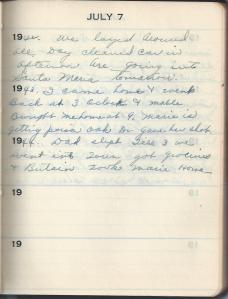 JULY 7
19 we layed around
all Day cleaned car in
afternoon are going into
Santa Maria tomorrow.
1943. I came home & went
back at 3 oclock & mable
brought me home at 9. Marie is
getting poison oak Dr gave her shot
1944. Dad slept Till 3 we
went into Town got groceries
& Britain took Marie Home
19
19